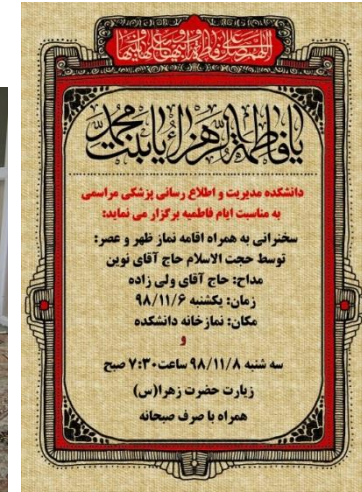 اللهم صل علی فاطمة و ابیها و بعلها و بنیها
یا فاطمة الزهراء یا بنت محمد
دانشکده مدیریت و اطلاع رسانی پزشکی مراسمی
به مناسبت ایام فاطمیه برگزار می نماید:
سخنرانی به همراه اقامه نماز ظهر و عصر:
توسط حجت الاسلام حاج آقای نوین
مداح: حاج آقای ولی زاده
زمان: یکشنبه ۹۸/۱۱/۶
مکان: نمازخانه دانشکده
و
سه شنبه ۹۸/۱۱/۸ ساعت ۷:۳۰ صبح
زیارت حضرت زهرا(س)
همراه با صرف صبحانه